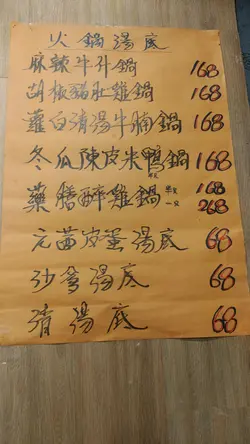 火鍋湯底
麻辣牛什鍋 168
胡椒豬肚雞鍋 168
蘿白清湯牛腩鍋 168
冬瓜陳皮米鴨鍋 168
藥膳醉雞鍋 168
268
元茜皮蛋湯底 68
沙爹湯底 68
清湯底 68